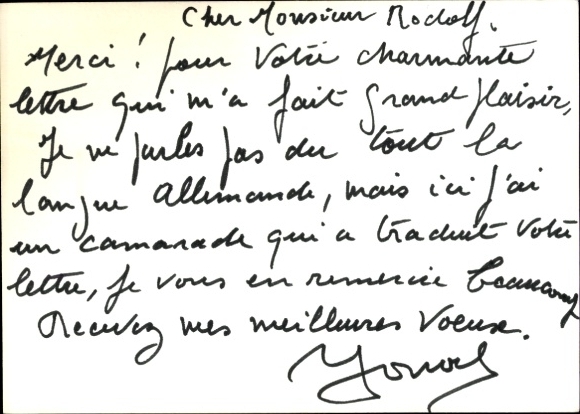 Cher Monsieur Rodolf.
Merci! pour Votre charmante
lettre qui m'a fait grand plaisir,
Je ne parles pas du tout la
langue Allemande, mais ici j'ai
un camarade qui a traduit Votre
lettre, je vous en remercie beaucoup
Recevez mes meilleures Voeux.